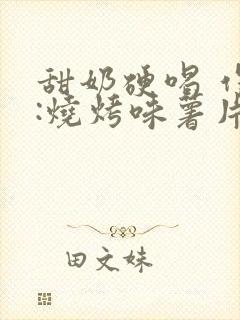 甜奶硬唱
:燒烤味薯片
田文妹